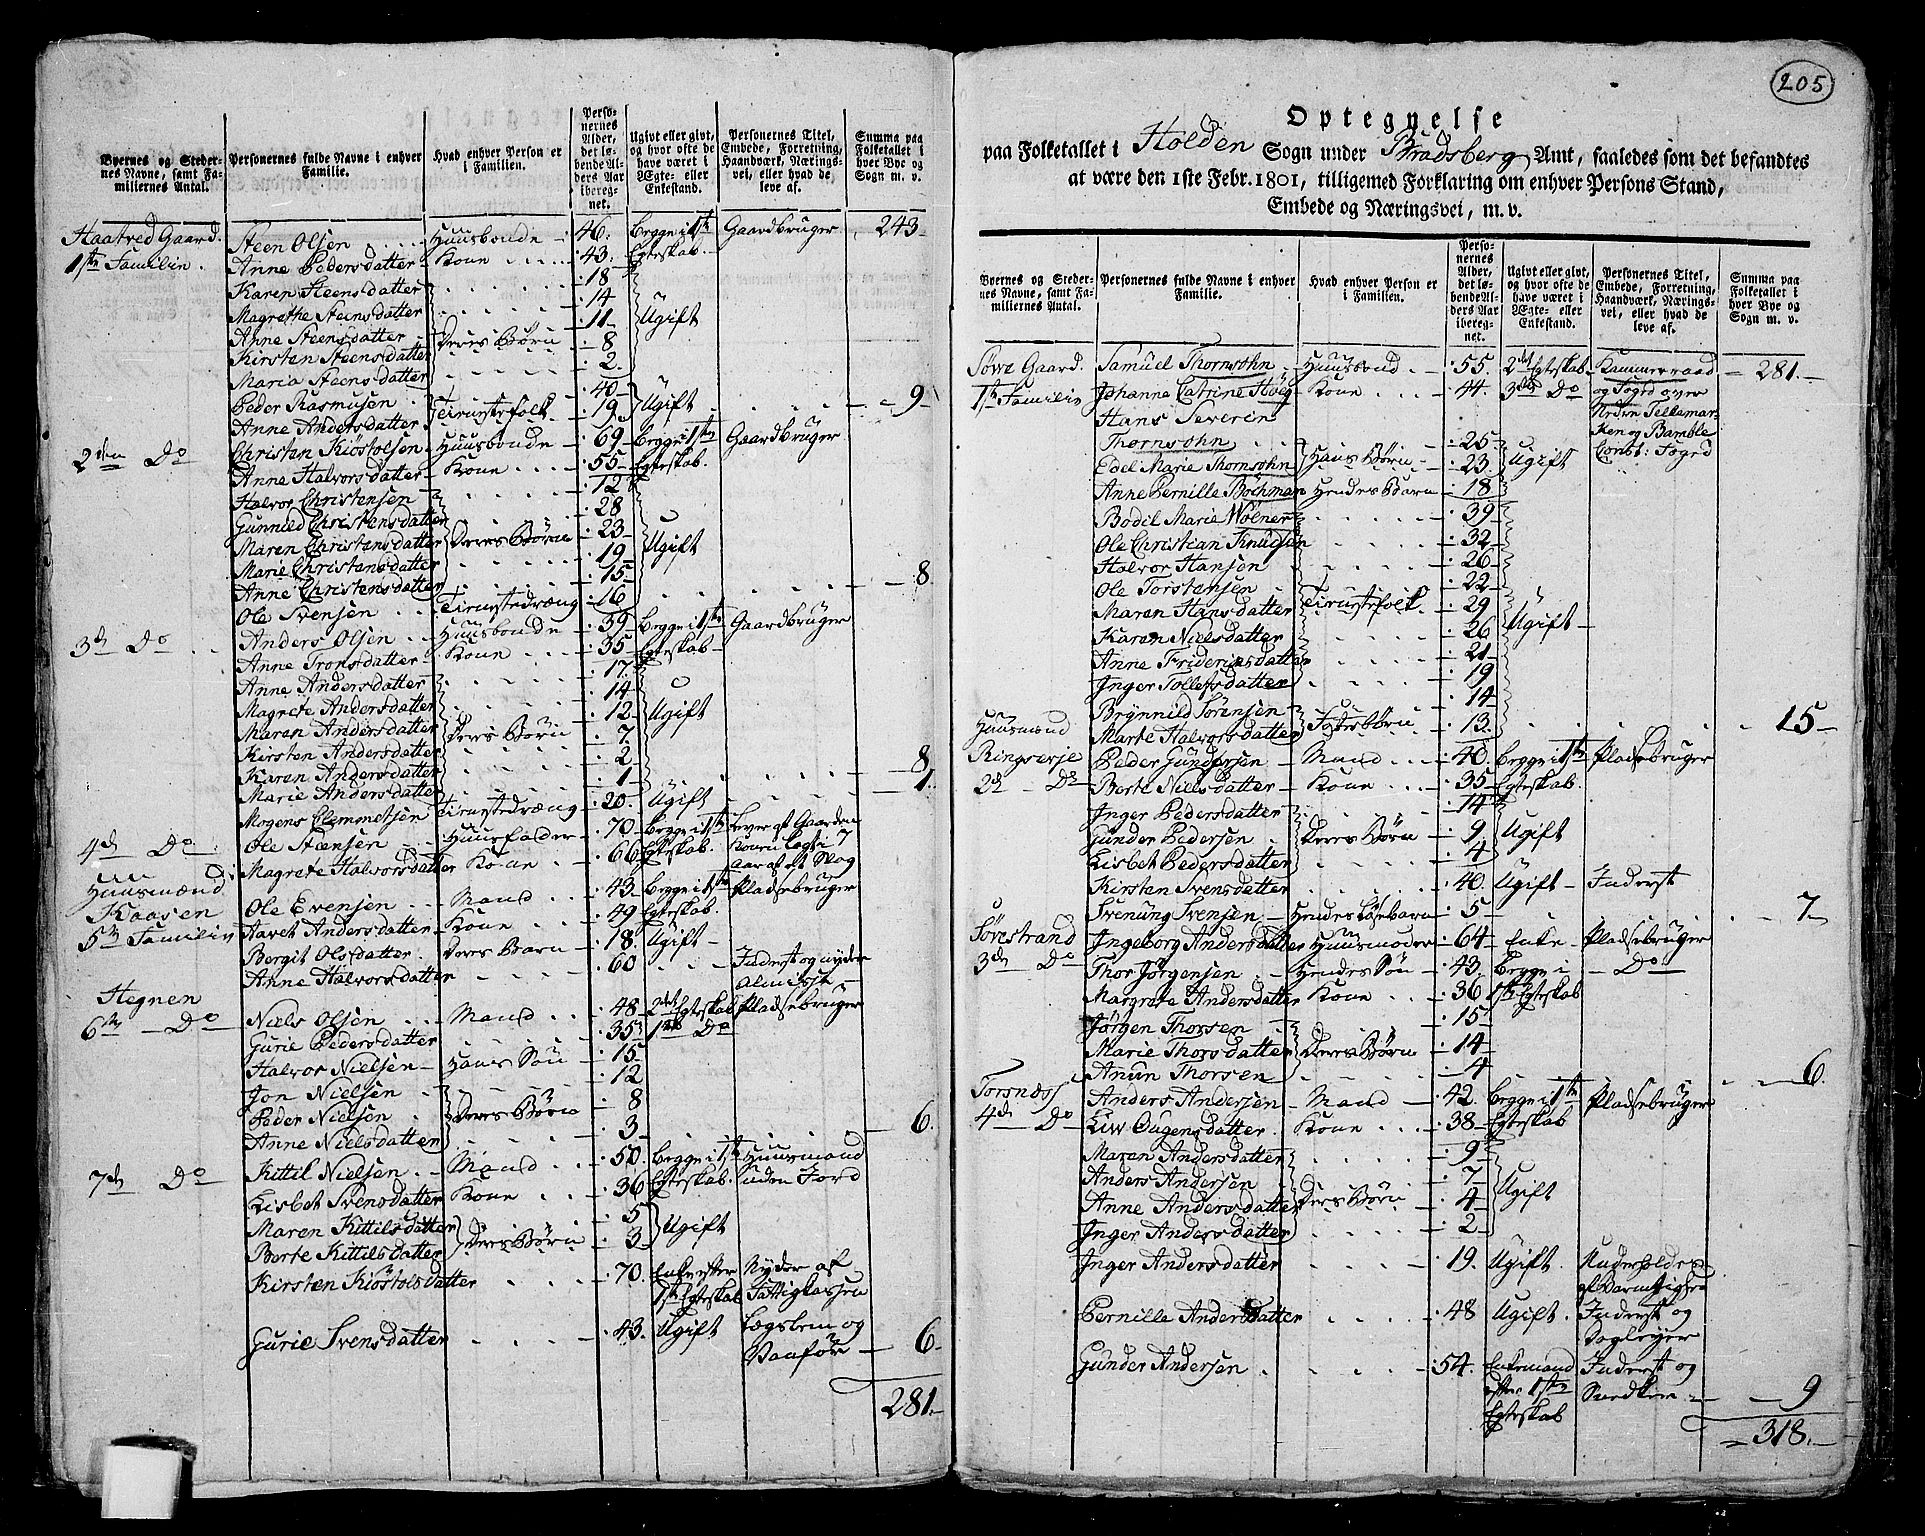 Byernes og Stedernes Navne, samt Familiernes Antal. | Personernes fulde Navne i enhver Familie. | Hvad enhver Person er i Familien. | Personernes Alder, det løbende Alders Aar iberegnet. | Ugivt eller givt, og hvor ofte de have været i Ægte- eller Enkestand. | Personernes Titel, Embede, Forretning, Haandværk, Næringsvei, eller hvad de leve af. | Summa paa Folketallet i hver Bye og Sogn m. v.
Haatved Gaard. | Steen Olsen | Huusbonde | 46. | begge i 1ste | Gaardbruger | 243
1ste Familie. | Anne Pedersdatter | Kone | 43. | Egteskab.
Karen Steensdatter | 18
Magrethe Steinsdatter | 14 | Ugift
Anne Steensdatter | Deres Børn | 11
Kirsten Steensdatter | 8
Maria Steensdatter | 2.
Peder Rasmusen | Tienistefolk | 40 | Ugift
Anne Andersdatter | 19 | 9
2den Do | Christen Kiöstolsen | Huusbonde | 69 | begge i 1ste | Gaardbruger
Anne Halvorsdatter | Kone | 55 | Egteskab.
Halvor Christensen | 12
Gunnild Christensdatter | 28
Maren Christensdatter | Deres Børn | 23 | Ugift
Marie Christensdatter | 19
Anne Christensdatter | 15
Ole Svensen | Tienistedræng | 16 | 8
3de Do | Anders Olsen | Huusbonde | 39 | begge i 1ste | Gaardbruger
Anne Tronsdatter | Kone | 35 | Egteskab
Anne Andersdatter | 17.
Magrete Andersdatter | 14
Maren Andersdatter | Deres Børn | 12 | Ugift
Kirsten Andersdatter | 7
Karen Andersdatter | 2
Marie Andersdatter | 1 | 8
Mogens Clemmetsen | Tienistedræng | 20. | Ugift | 1.
4de Do | Ole Steensen | Huusfader | 70. | begge i 1ste | Lever af Gaarden
Magrete Halvorsdatter | Kone | 66 | Egteskab.
Huusmænd
Kaasen | Ole Evensen | Mand | 43 | begge i 1ste | Pladsebruger
5te Familie | Aavet Andersdatter | Kone | 49 | Egteskab.
Bergit Olsdatter | Deres Barn | 18. | Ugift
Anne Halvorsdatter | 60 | Inderst og nyder
Almisse
Hegnen | Niels Olsen | Mand | 48 | 2det Egteskab | Pladsebruger
6te Do | Gurie Pedersdatter | 35 | 1ste Do
Halvor Nielsen | Hans Søn | 15
Jon Nielsen | 12
Peder Nielsen | Deres Børn | 8
Anne Nielsdatter | 3 | 6.
7de Do | Kittil Nielsen | Mand | 50. | begge i 1ste | Huusmand
Lisbet Svensdatter | Kone | 36 | Egteskab. | uden Jord
Maren Kittilsdatter | Deres Børn | 5 | Ugift
Berte Kittilsdatter | 3
Kirsten Kiöstolsdatter | 70. | Enke efter | Nyder af
1ste Egteskab | Fattigkassen
Gurie Svensdatter | 43. | Ugift | Lægslem og
Vanför | 6
281.
205
Optegnelse
paa Folketallet i Holden Sogn under Bradsberg Amt, saaledes som det befandtes
at være den 1ste Febr. 1801, tilligemed Forklaring om enhver Persons Stand,
Embede og Næringsvei, m. v.
Byernes og Stedernes Navne, samt Familiernes Antal. | Personernes fulde Navne i enhver Familie. | Hvad enhver Person er i Familien. | Personernes Alder, det løbende Alders Aar iberegnet. | Ugivt eller givt, og hvor ofte de have været i Ægte- eller Enkestand. | Personernes Titel, Embede, Forretning, Haandværk, Næringsvei, eller hvad de leve af. | Summa paa Folketallet i hver Bye og Sogn m. v.
Söwe Gaard. | Samuel Thornsohn | Huusbond | 55. | 2det Egteskab | Kammerraad | 281.
1ste Familie | Johanne Catrine Höeg | Kone | 44. | 3die Do | og Foged over
Hans Severin | Nedre Tellemar-
Thornsohn | Hans Børn | 25 | Ugift | ken og Bamble
Edel Marie Thornsohn | 23 | Const: Foged
Anne Pernille Bochman | Hendes Barn | 18
Bodil Marie Wolner | 39
Ole Christian Knudsen | 32
Halvor Hansen | 26
Ole Torstensen | 22
Maren Hansdatter | Tienistefolk | 29 | Ugift
Karen Nielsdatter | 26
Anne Fridericsdatter | 21
Inger Tollefsdatter | 19
Brynnild Sörensen | Fosterbørn | 14
Huusmænd | Marte Halvorsdatter | 13. | 15
Ringserje | Peder Gundersen | Mand | 40. | begge i 1ste | Pladsebruger
2de Do | Berte Nielsdatter | Kone | 35 | Egteskab.
Inger Pedersdatter | 14
Gunder Pedersen | Deres Børn | 9 | Ugift
Lisbet Pedersdatter | 4
Kirsten Svensdatter | 40. | Ugift | Inderst
Svenung Svensen | Hendes Løsebarn | 5 | 7
Sövestrand | Ingeborg Andersdatter | Huusmoder | 64 | Enke | Pladsebruger
3de Do | Thor Jörgensen | Hendes Søn | 43. | begge i | Do
Margrete Andersdatter | Kone | 36 | 1ste Egteskab
Jörgen Thorsen | 15
Marie Thorsdatter | Deres Børn | 14
Anun Thorsen | 4 | 6.
Torsnæss | Anders Andersen | Mand | 42. | begge i 1ste | Pladsebruger
4de Do | Liw Ougensdatter | Kone | 38 | Egteskab
Maren Andersdatter | 9
Anders Andersen | Deres Børn | 7 | Ugift
Anne Andersdatter | 4
Inger Andersdatter | 2
Inger Andersdatter | 19. | Ugift. | Underholdes
af Barmhiertighed
Pernille Andersdatter | 48 | Ugift. | Inderst og
Gunder Andersen | 54. | Enkemand | Inderst og
efter 1ste | Snedker | 9
Egteskab
318.